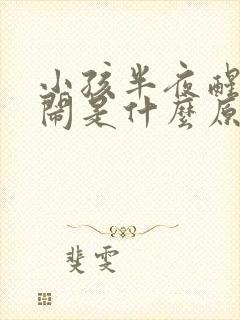 小孩半夜醒
鬧是什麼原
斐雯